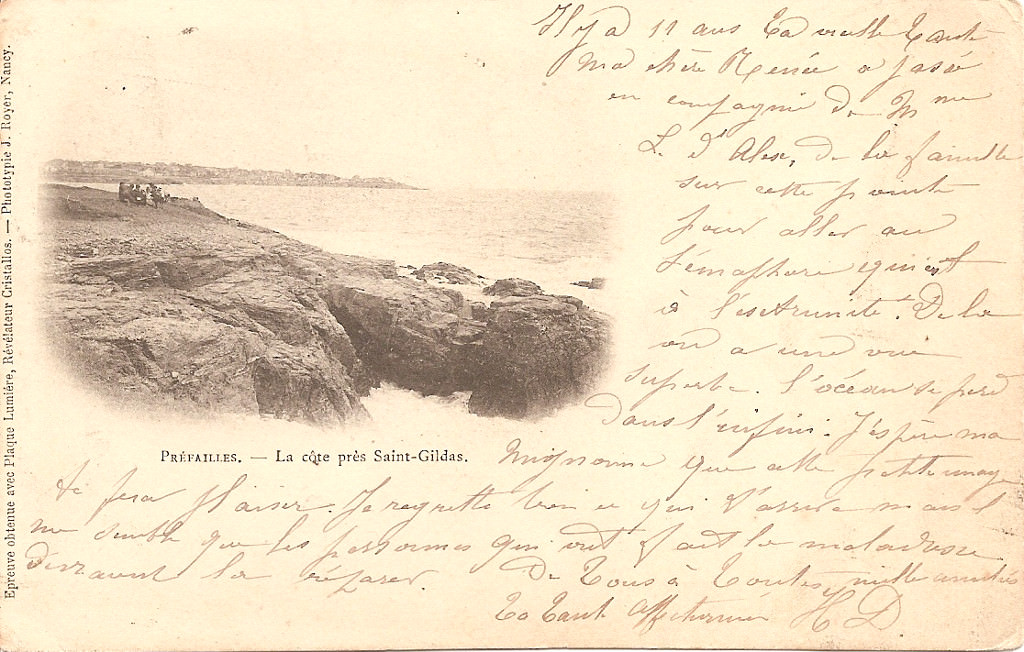 Il y a 11 ans ta vieille tante
ma chère Renée a passé
en compagnie de Mme
L. d'Alex, de la famille
sur cette pointe
pour aller au
sémaphore qui est
à l'extrémité. De là
on a une vue
superbe. L'océan se perd
dans l'infini. J'espère ma
mignonne que cette petite image
te fera plaisir. Je regrette bien ce qui t'arrive mais il
me semble que les personnes qui ont fait la maladresse
devraient la réparer. De tous à toutes mille amitiés
Ta tante affectionnée H D
PRÉFAILLES. — La côte près Saint-Gildas.
Epreuve obtenue avec Plaque Lumière, Révélateur Cristallos. — Phototypie J. Royer, Nancy.